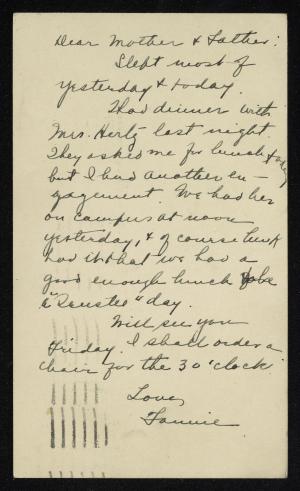 Dear Mother & Father:
Slept most of
yesterday & today.
Had dinner with
Mrs. Hertz last night.
They asked me for lunch today
but I had another en-
gagement. We had her
on campus at noon
yesterday, & of course luck
had it that we had a
good enough lunch to be
a "Trustee" day.
Will see you
Friday. I shall order a
chair for the 3 o'clock.
Love,
Fannie